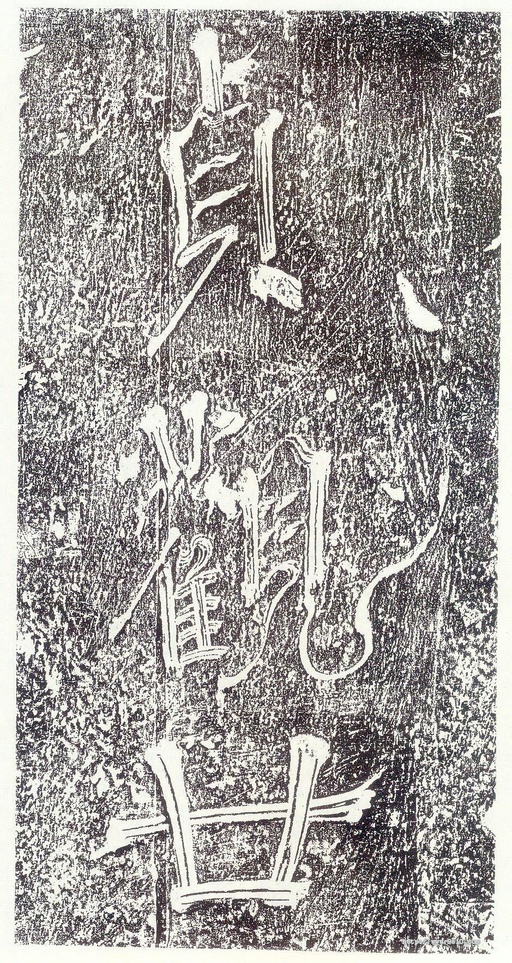 貞觀廿